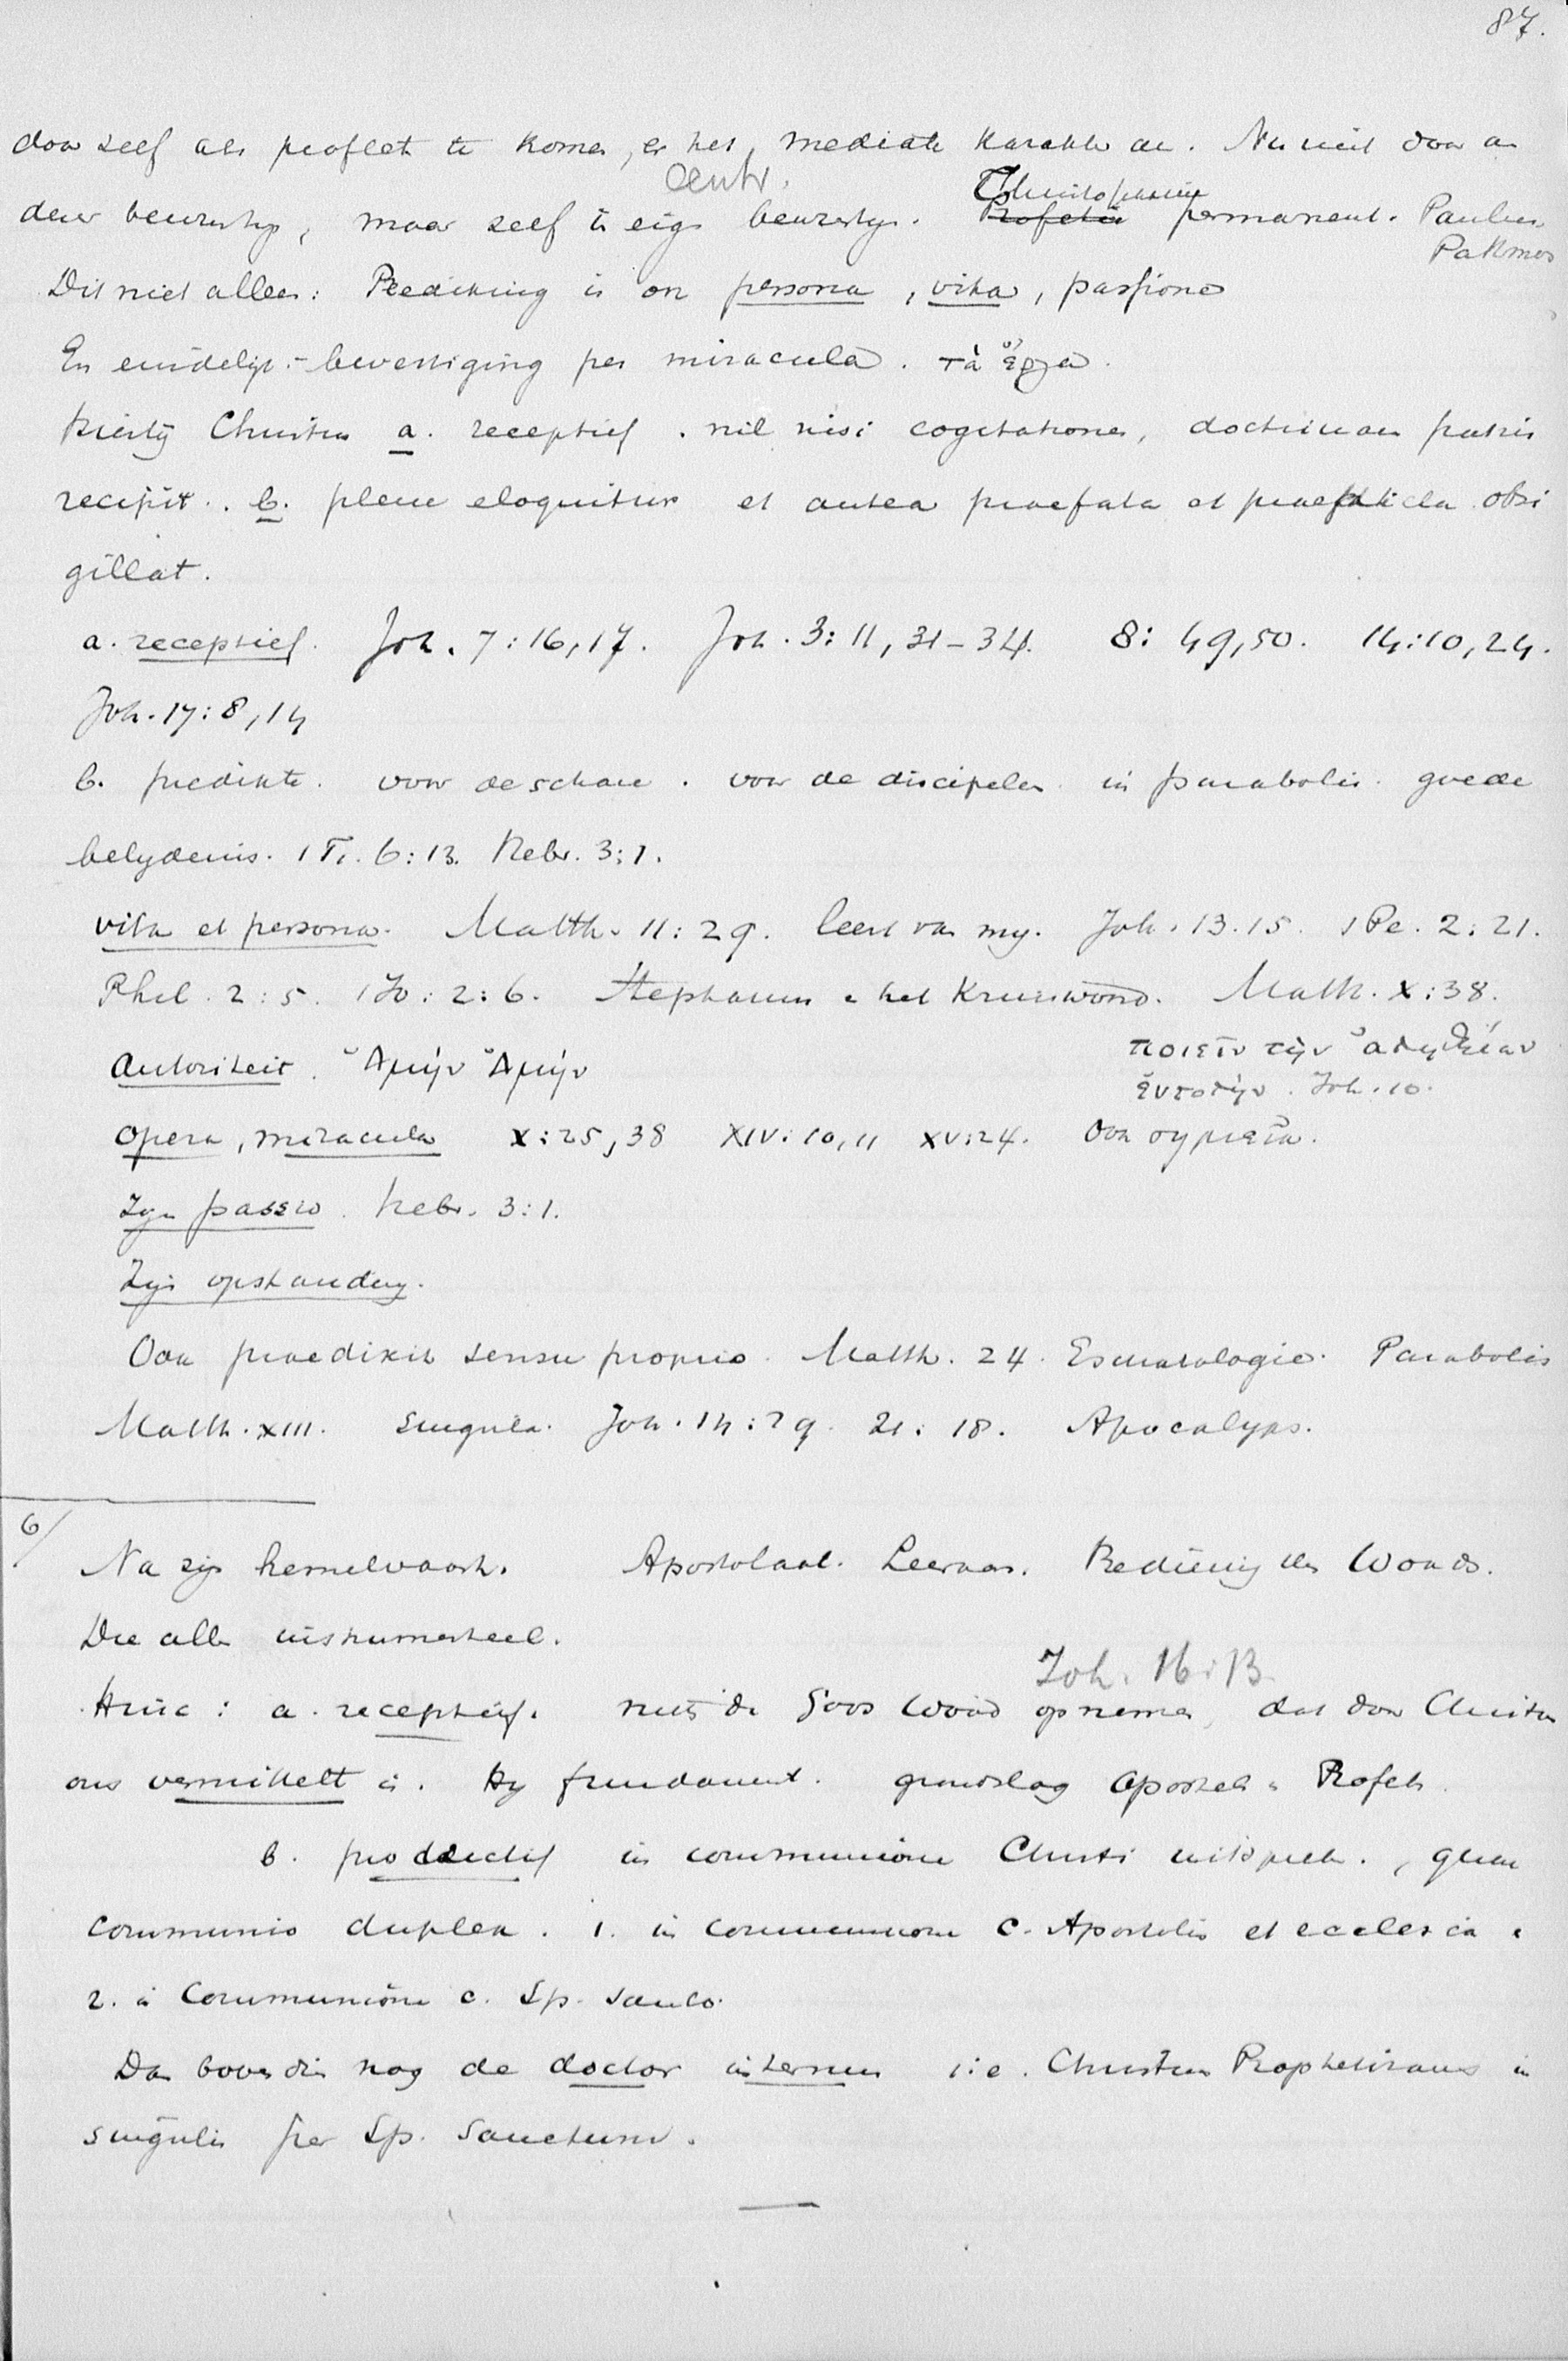 87.
door zelf als profeet te komen, er het mediate karakter aan. Nu niet door an
Centr.
dere bewustzijn, maar zelf in eigen bewustzijn. Profetie Christophanie permanent. Paulus
Patmos
Dit niet alleen: Prediking is ook persona, vita, passione
En eindelijk: bevestiging per miracula. τὰ ἔργα.
Hierbij Christus a. receptief. nil nisi cogitationes, doctrinam patris
recipit. b. plene eloquitur et antea praefata et praedicta obsi
gillat.
a. receptief. Joh. 7:16,17. Joh. 3:11, 31-34. 8:49,50. 14:10,24.
Joh. 17:8,14
b. predikte. voor de schare. voor de discipelen in parabolis. goede
belydenis. 1 Ti. 6:13. Hebr. 3:1.
vita et persona. Matth. 11:29. leert van my. Joh. 13.15. 1 Pe. 2:21.
Phil. 2:5. 1 Jo: 2:6. Stephanus en het Kruiswoord. Matth. X:38.
ποιεῖν τὴν ἀλήθειαν
Autoriteit. Ἀμήν Ἀμήν
ἐντολήν. Joh. 10.
Opera, miracula X:25,38 XIV:10,11 XV:24. Ook σημεῖα.
Zyn passio. Hebr. 3:1.
Zijn opstanding.
Ook praedixit sensu proprio. Matth. 24. Eschatologie. Parabolis
Matth. XIII. Singula. Joh. 14:29. 21:18. Apocalyps.
6/
Na zijn hemelvaart. Apostolaat. Leeraar. Bediening des Woords.
Die alle instrumenteel.
Joh. 16:13.
Hinc: a. receptief. niets dan Gods Woord opnemen, dat door Christus
ons vermittelt is. Hy fundament. grondslag Apostelen en Profeten.
b. productief in communione Christi uitspreken., quae
communio duplex. 1. in communione c. Apostolis et ecclesia en
2. in Communione c. Sp. Sancto.
Dan bovendien nog de doctor internus i.e. Christus Prophetizans in
singulis per Sp. Sanctum.